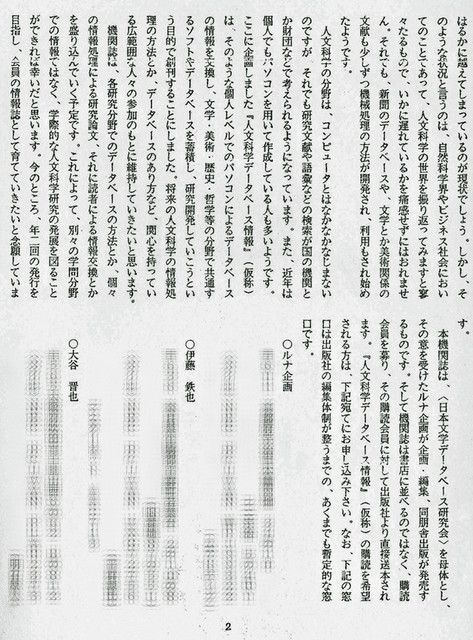 はるかに越えてしまっているのが現状でしょう。しかし、そ
のような状況と言うのは、自然科学界やビジネス社会におい
てのことであって、人文科学の世界を振り返ってみますと寥
々たるもので、いかに遅れているかを痛感せずにはおれませ
ん。それでも、新聞のデータベースや、文学とか美術関係の
文献も少しずつ機械処理の方法が開発され、利用もされ始め
たようです。
人文科学の分野は、コンピュータとはなかなかなじまない
のですが、それでも研究文献や語彙などの検索が国の機関と
か財団などで考えられるようになっています。また、近年は
個人でもパソコンを用いて作成している人も多いようです。
ここに企画しました『人文科学データベース情報』(仮称)
は、そのような個人レベルでのパソコンによるデータベース
の情報を交換し、文学・美術・歴史・哲学等の分野で共通す
るソフトやデータベースを蓄積し、研究開発していこうとい
う目的で創刊することにしました。将来の人文科学の情報処
理の方法とか、データベースのあり方など、関心を持ってい
る広範囲な人々の参加のもとに維持していきたいと思います。
機関誌は、各研究分野でのデータベースの方法とか、個々
の情報処理による研究論文、それに読者による情報交換とか
を盛り込んでいく予定です。これによって、別々の学問分野
での情報ではなく、学際的な人文科学研究の発展を図ること
ができれば幸いだと思います。今のところ、年二回の発行を
目指し、会員の情報誌として育てていきたいと念願していま
す。
本機関誌は、〈日本文学データベース研究会〉を母体とし、
その意を受けたルナ企画が企画・編集、同朋舎出版が発売す
るものです。そして機関誌は書店に並べるのではなく、購読
会員を募り、その購読会員に対して出版社より直接送本され
ます。『人文科学データベース情報』(仮称)の購読を希望
される方は、下記宛てにお申し込み下さい。なお、下記の窓
口は出版社の編集体制が整うまでの、あくまでも暫定的な窓
口です。
○ルナ企画
○伊藤 鉄也
○大谷 晋也
2